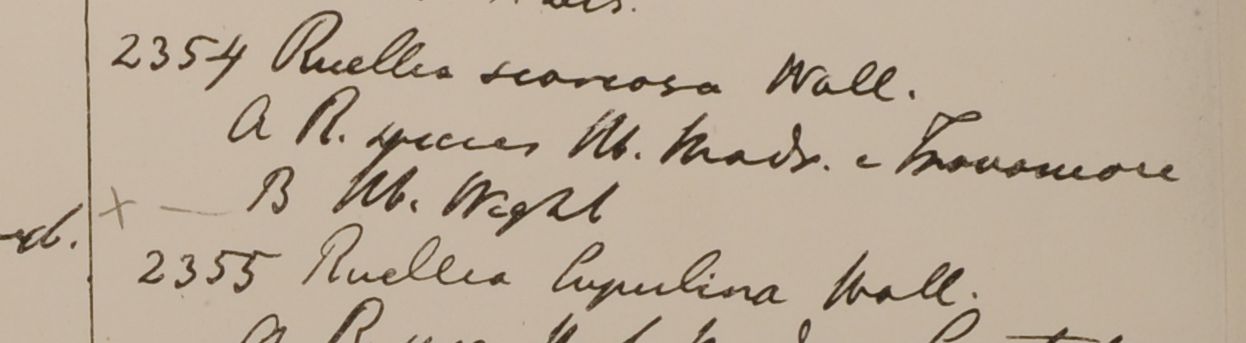 2354 Ruellia scariosa Wall.
A R. species Hb. Madr. e Travancore
× — B Hb. Wight
2355 Ruellia lupulina Wall.